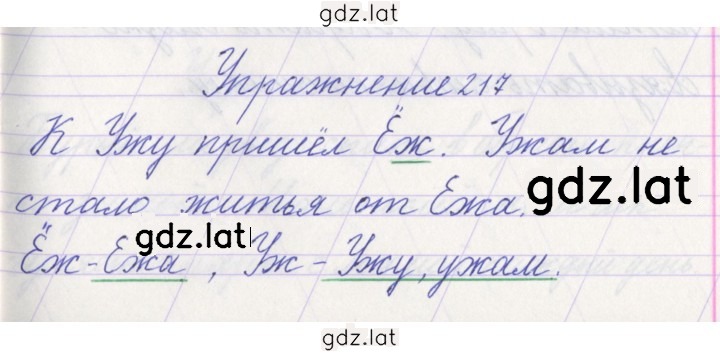 gdz.lat
Упражнение 217
К Ужу пришёл Ёж. Ужам не
gdz.lat
стало житья от Ежа.
gdz.lat
Ёж - Ежа, Уж - Ужу, ужам.
gdz.lat